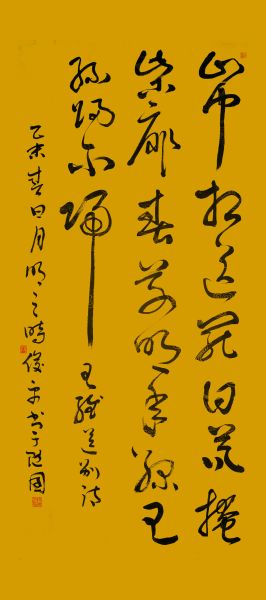 山中相送罷日暮掩
柴扉春草明年綠王
孫歸不歸 王維送別詩
乙未春日月明之時俊書于園